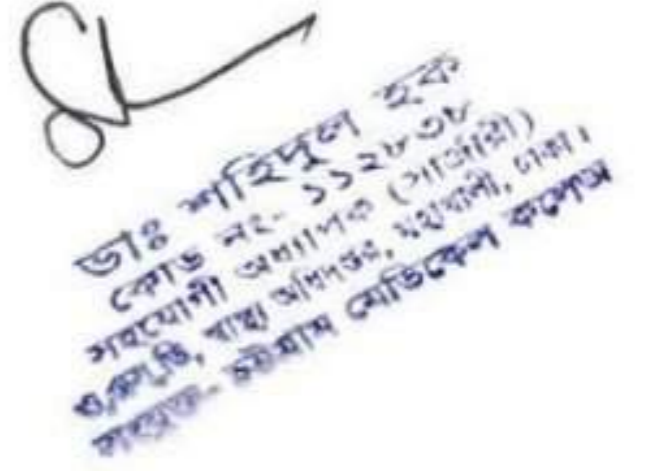 ডাঃ শহিদুল হক
কোড নং- ১১২৮৩৮
সহযোগী অধ্যাপক (সার্জারী)
ওএসডি, স্বাস্থ্য অধিদপ্তর, মহাখালী, ঢাকা।
সংযুক্ত- চট্টগ্রাম মেডিকেল কলেজ